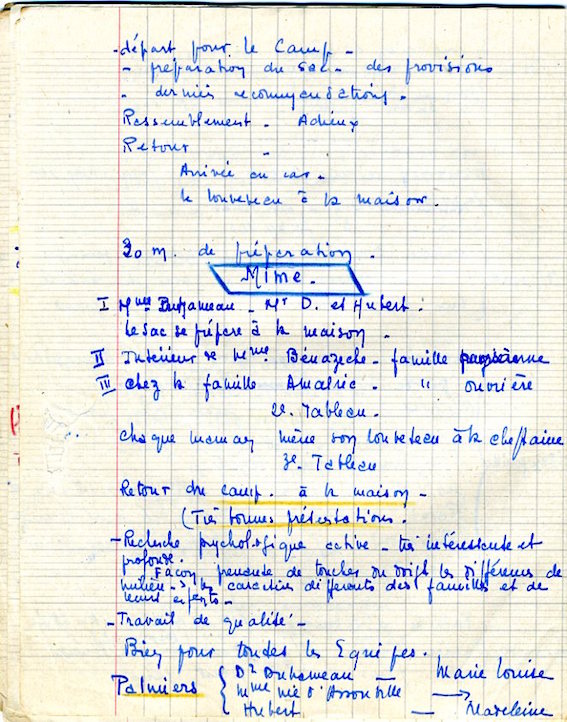 - départ pour le Camp -
- préparation du sac - des provisions
- derniès recommandations.
Rassemblement - Adieux
Retour -
Arrivée en car -
le louveteau à la maison.
20 m. de préparation.
Mime.
I Mme Duhameau - Mr D. et Hubert.
Le sac se prépare à la maison.
II Intérieur de Mme Bénazeche - famille paysanne
III Chez la famille Amalric. " ouvrière
2e. Tableau.
chaque maman mène son louveteau à la cheftaine
3e. Tableau
Retour du camp. à la maison -
(Très bonnes présentations.
- Recherche psychologique active - très intéressante et
profonde.
Façon de toucher du doigt les différences de
milieu - les caractères différents des familles et de
leurs enfants -
- Travail de qualité -
Bien pour toutes les Equipes.
Palmiers { Dr Duhameau — Marie Louise
Mme née d' →
Hubert — Madeleine